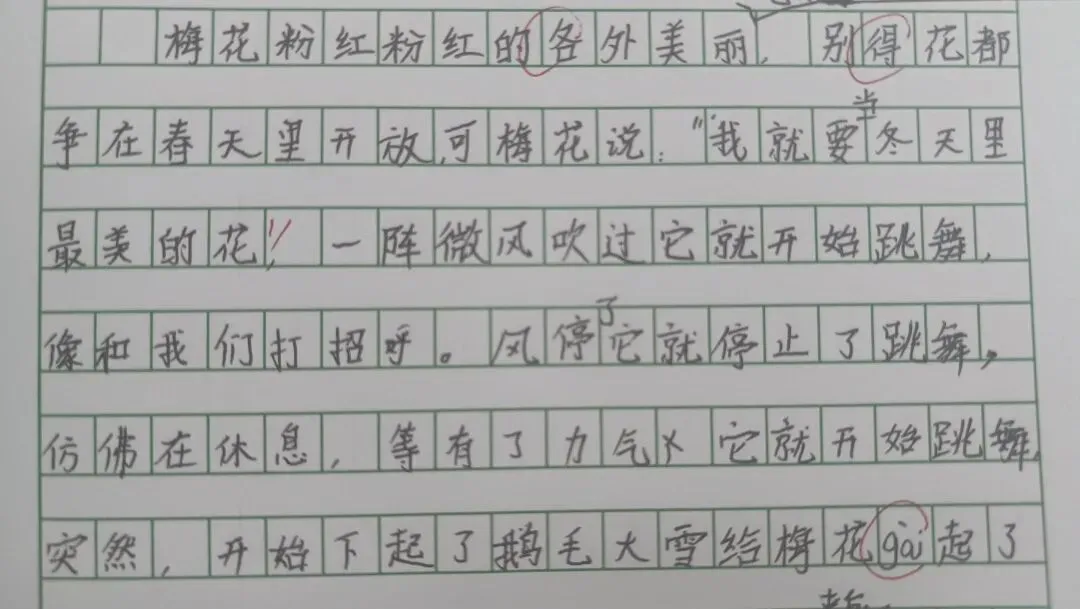 梅花粉红粉红的各外美丽，别得花都
争在春天里开放,可梅花说："我就要当冬天里
最美的花！一阵微风吹过它就开始跳舞，
像和我们打招呼。风停了它就停止了跳舞，
仿佛在休息，等有了力气它就开始跳舞，
突然，开始下起了鹅毛大雪给梅花gài起了